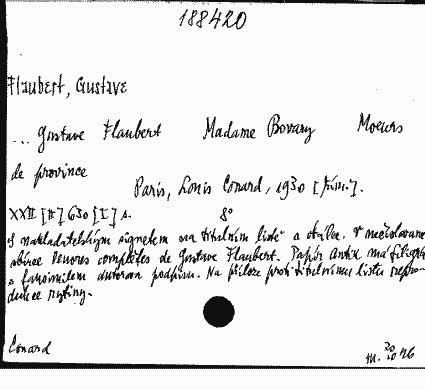 188420
Flaubert, Gustave
... Gustave Flaubert Madame Bovary Moeurs
de province
Paris, Louis Conard, 1930 [
XXII [II] 630 [I] s. 8°
S nakladatelským signetem na titulním listě a obálce. V nečíslované
sbírce Oeuvres complètes de Gustave Flaubert. Papír Antik má filigrán
s faksimilem autorova podpisu. Na příloze proti titulnímu listu repro-
dukce rytiny.
Conard